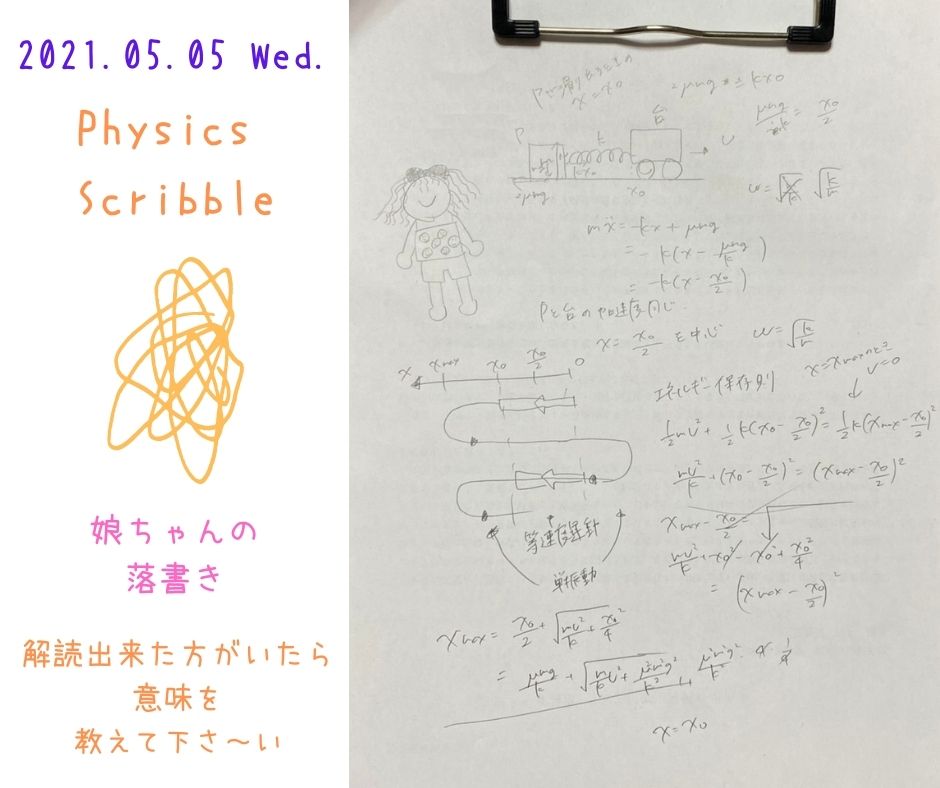 2021.05.05 Wed.
Physics
Scribble
娘ちゃんの
落書き
解読出来た方がいたら
意味を
教えて下さ〜い
x = x0
2μmg = kx0
μmg/k = x0/2
P
台
k
U
kx0
x0
2μmg
ω = √(k/m)
mẍ = -kx + μmg
= -k(x - μmg/k)
= -k(x - x0/2)
Pと台の加速度同じ
x = x0/2 を中心 ω = √(k/m)
x xmax x0 x0/2 0
エネルギー保存則
x = xmaxのとき
v = 0
1/2 mU² + 1/2 k(x0 - x0/2)² = 1/2 k(xmax - x0/2)²
mU²/k + (x0 - x0/2)² = (xmax - x0/2)²
xmax - x0/2 =
mU²/k + x0² - x0² + x0²/4
= (xmax - x0/2)²
等速度運動
単振動
xmax = x0/2 + √(mU²/k + x0²/4)
= μmg/k + √(m/k U² + μ²m²g²/k²)
μ²m²g²/k²
x = x0